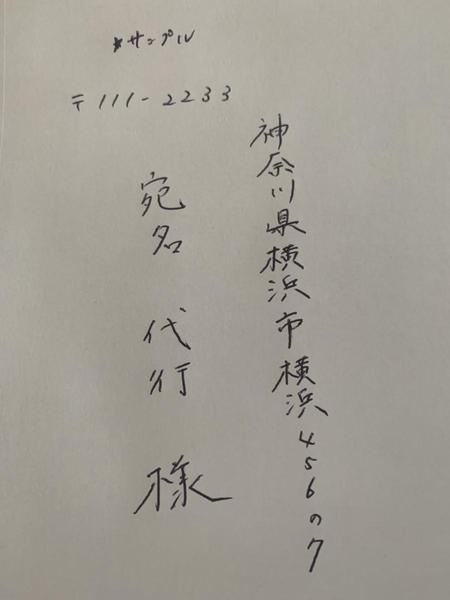 *サンプル
〒111-2233
神奈川県横浜市横浜456の7
宛名 代行 様